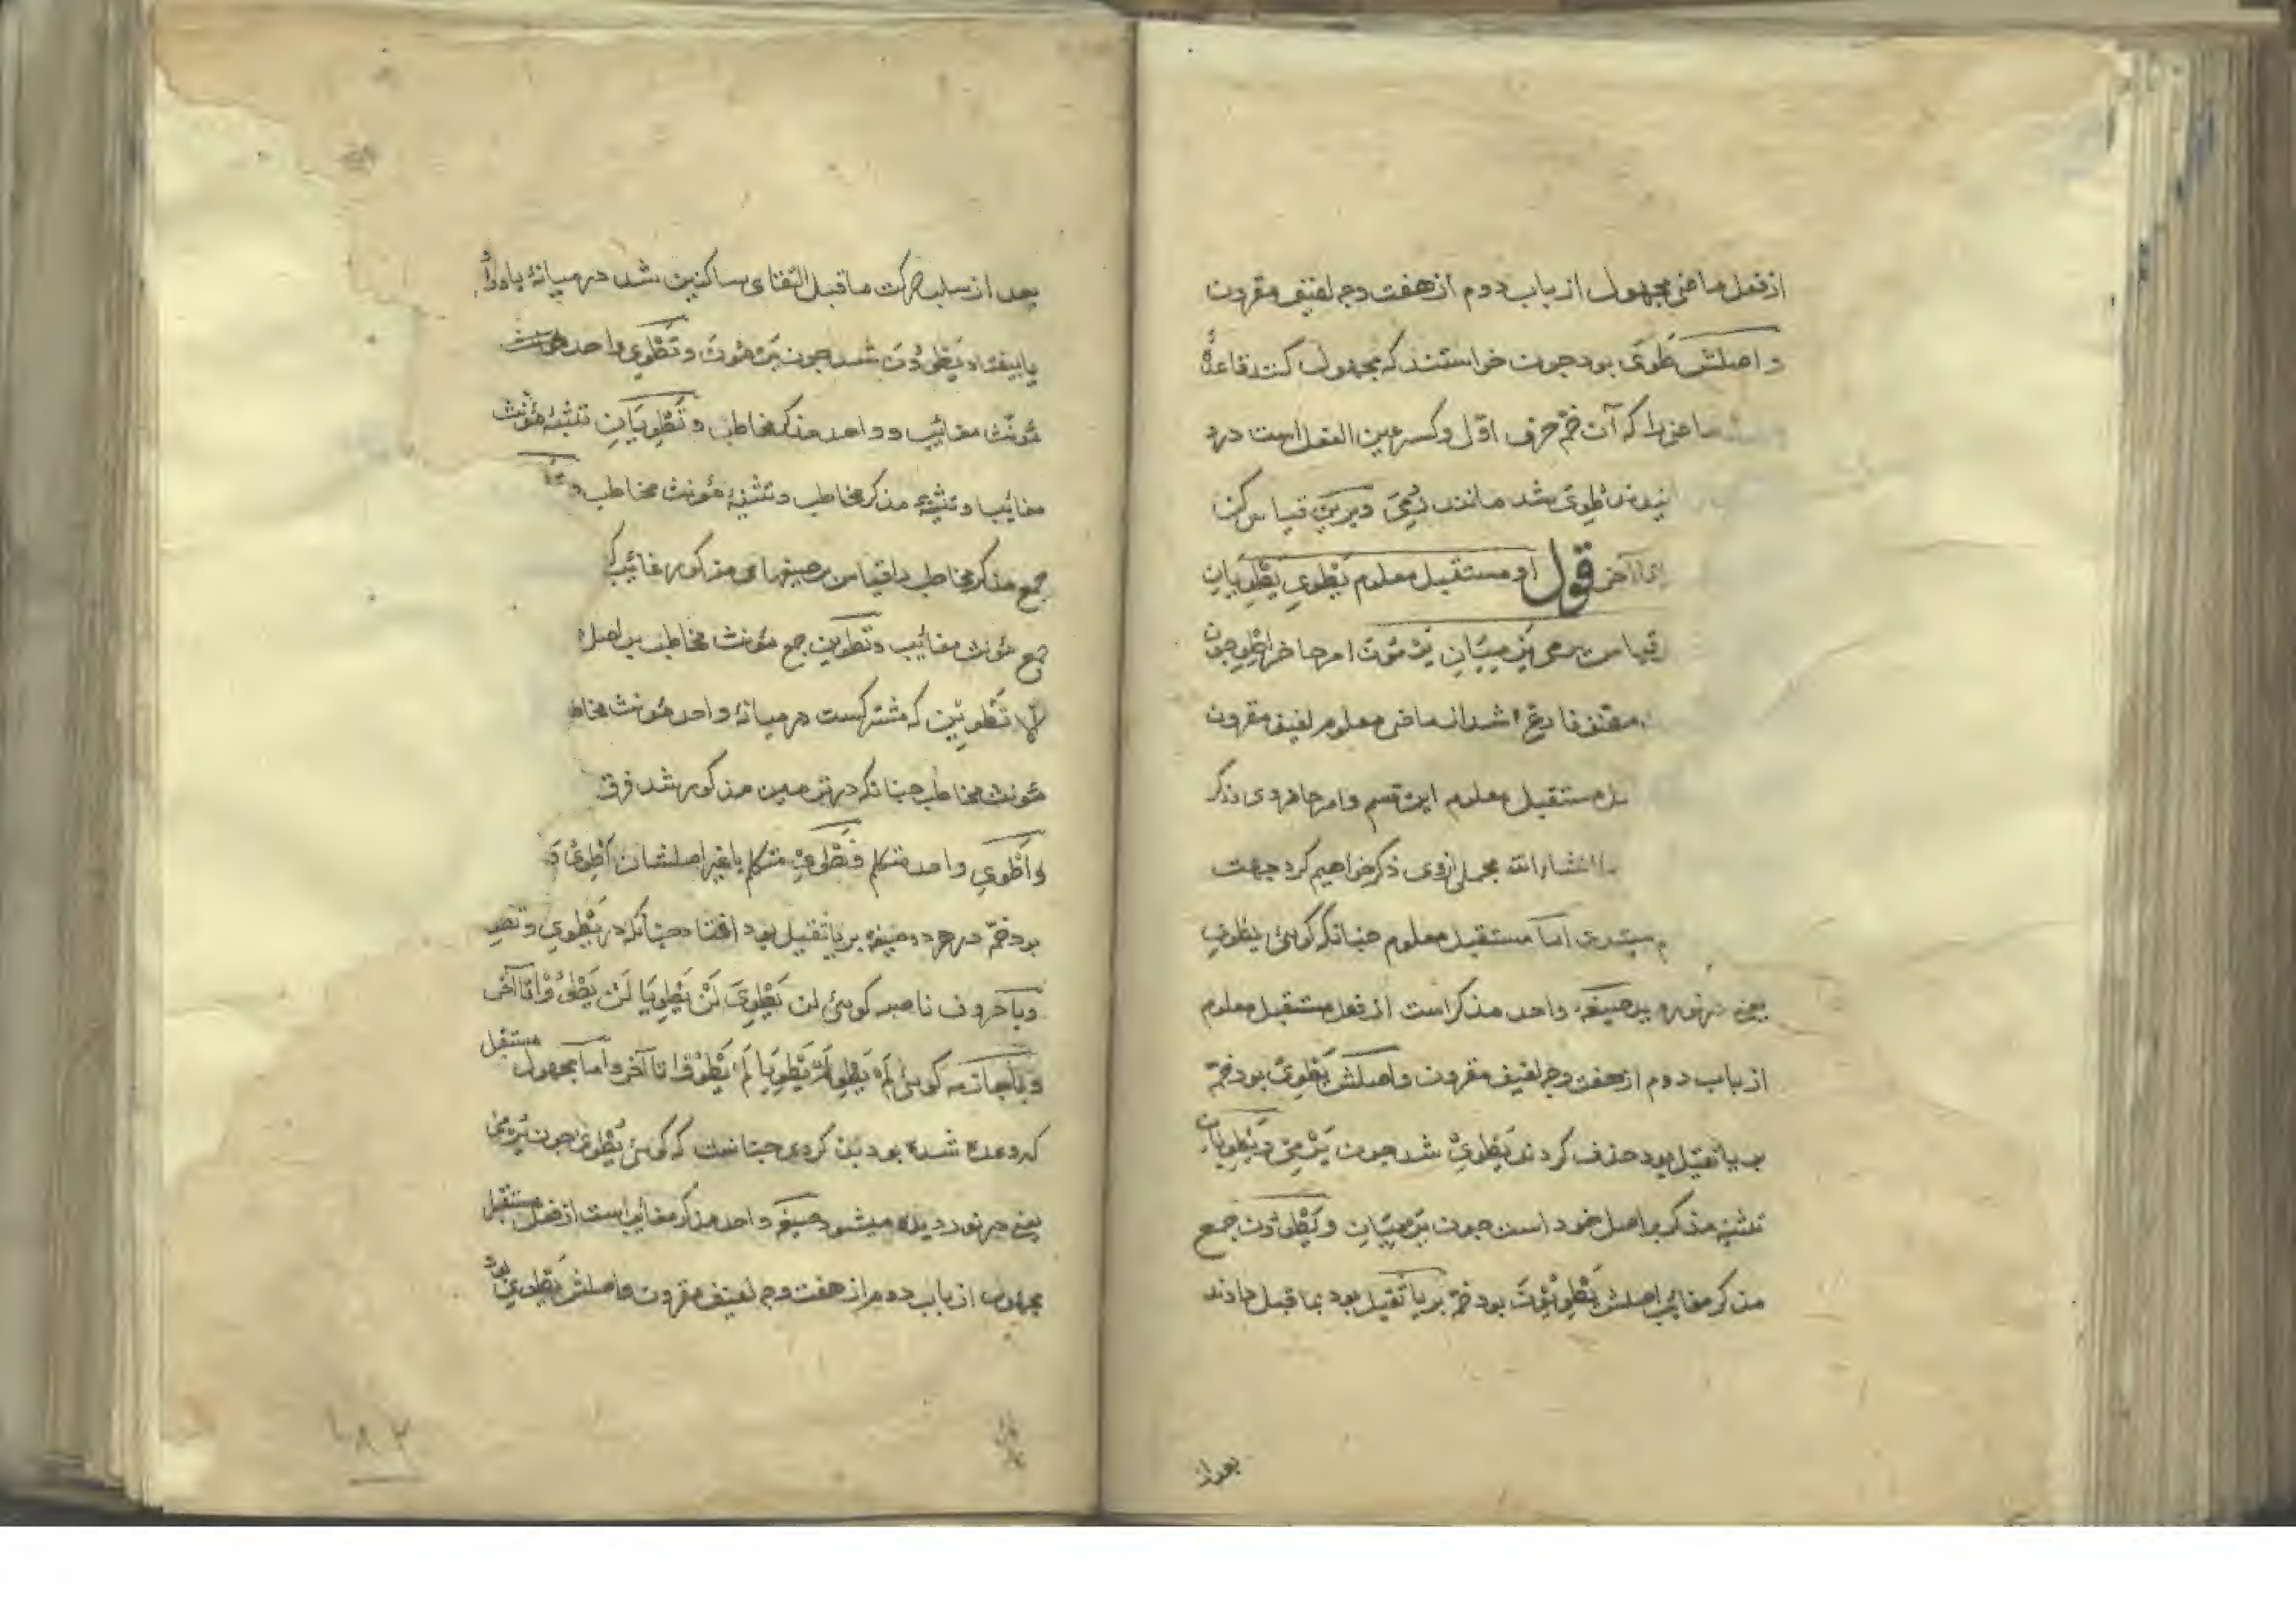 از فعل ماضی مجهول از باب دوم از هفت وجه لفیف مقرون
و اصلش طَوَیَ بود چون خواستند که مجهول کنند قاعدهٔ
ماضی را که آن ضمّ حرف اوّل و کسر عین الفعل است در
طُوِیَ شد مانند رُمِیَ و برین قیاس کن
آخر قول او مستقبل معلوم یَطْوِی یَطْوِیَانِ
قیاس یرمی یَرْمِیَانِ یَرْمُونَ امر حاضر اِطْوِ چون
شد از ماضی معلوم لفیف مقرون
مستقبل معلوم این قسم و امر حاضر وی ذکر
انشاءالله مجملی از وی ذکر خواهیم کرد جهت
مبتدی اما مستقبل معلوم چنانکه گوئی یطوی
یعنی در نورد صیغه واحد مذکر است از فعل مستقبل معلوم
از باب دوم از هفت وجه لفیف مقرون و اصلش یَطْوِیُ بود ضمّه
بر یا ثقیل بود حذف کردند یَطْوِیْ شد چون یَرْمِیْ و یَطْوِیَانِ
تثنیه مذکر بر اصل خود است چون یَرْمِیَانِ و یَطْوُونَ جمع
مذکر مغایب اصلش یَطْوِیُونَ بود ضمّه بر یا ثقیل بود بما قبل دادند
بعد از
بعد از سلب حرکت ماقبل التقای ساکنین شد در میانهٔ یا و واو
یا بیفتاد یَطْوُونَ شد چون یَرْمُونَ و تَطْوِی واحد
مؤنث مغایب و واحد مذکر مخاطب و تَطْوِیَانِ تثنیهٔ مؤنث
مغایب و تثنیهٔ مذکر مخاطب و تثنیهٔ مؤنث مخاطب و
جمع مذکر مخاطب را قیاس بر صیغهای مذکور غائب
جمع مؤنث مغایب و تطوین جمع مؤنث مخاطب بر اصل
تَطْوِیْنَ که مشترکست در میانهٔ واحد مؤنث
مؤنث مخاطب چنانکه در ترمین مذکور شد فرق
و اَطْوِی واحد متکلم و نَطْوِی متکلم با غیر اصلشان اَطْوِیُ
بود ضمّه در هر دو صیغه بر یا ثقیل بود افتاد چنانکه در یَطْوِی و
و با حروف ناصبه گوئی لن یَطْوِیَ لَنْ یَطْوِیَا لَنْ یَطْوُوْا تا آخر
و با جازمه گوئی لَمْ یَطْوِ لَمْ یَطْوِیَا لَمْ یَطْوُوْا تا آخر و اما مجهول مستقبل
که وعده شده بود بیان کردن چنانست که گوئی یُطْوَی چون یُرْمَی
یعنی در نوردیده میشود صیغه واحد مذکر مغایب است از فعل مستقبل
مجهول از باب دوم از هفت وجه لفیف مقرون و اصلش یُطْوَیُ بود
۱۸۲